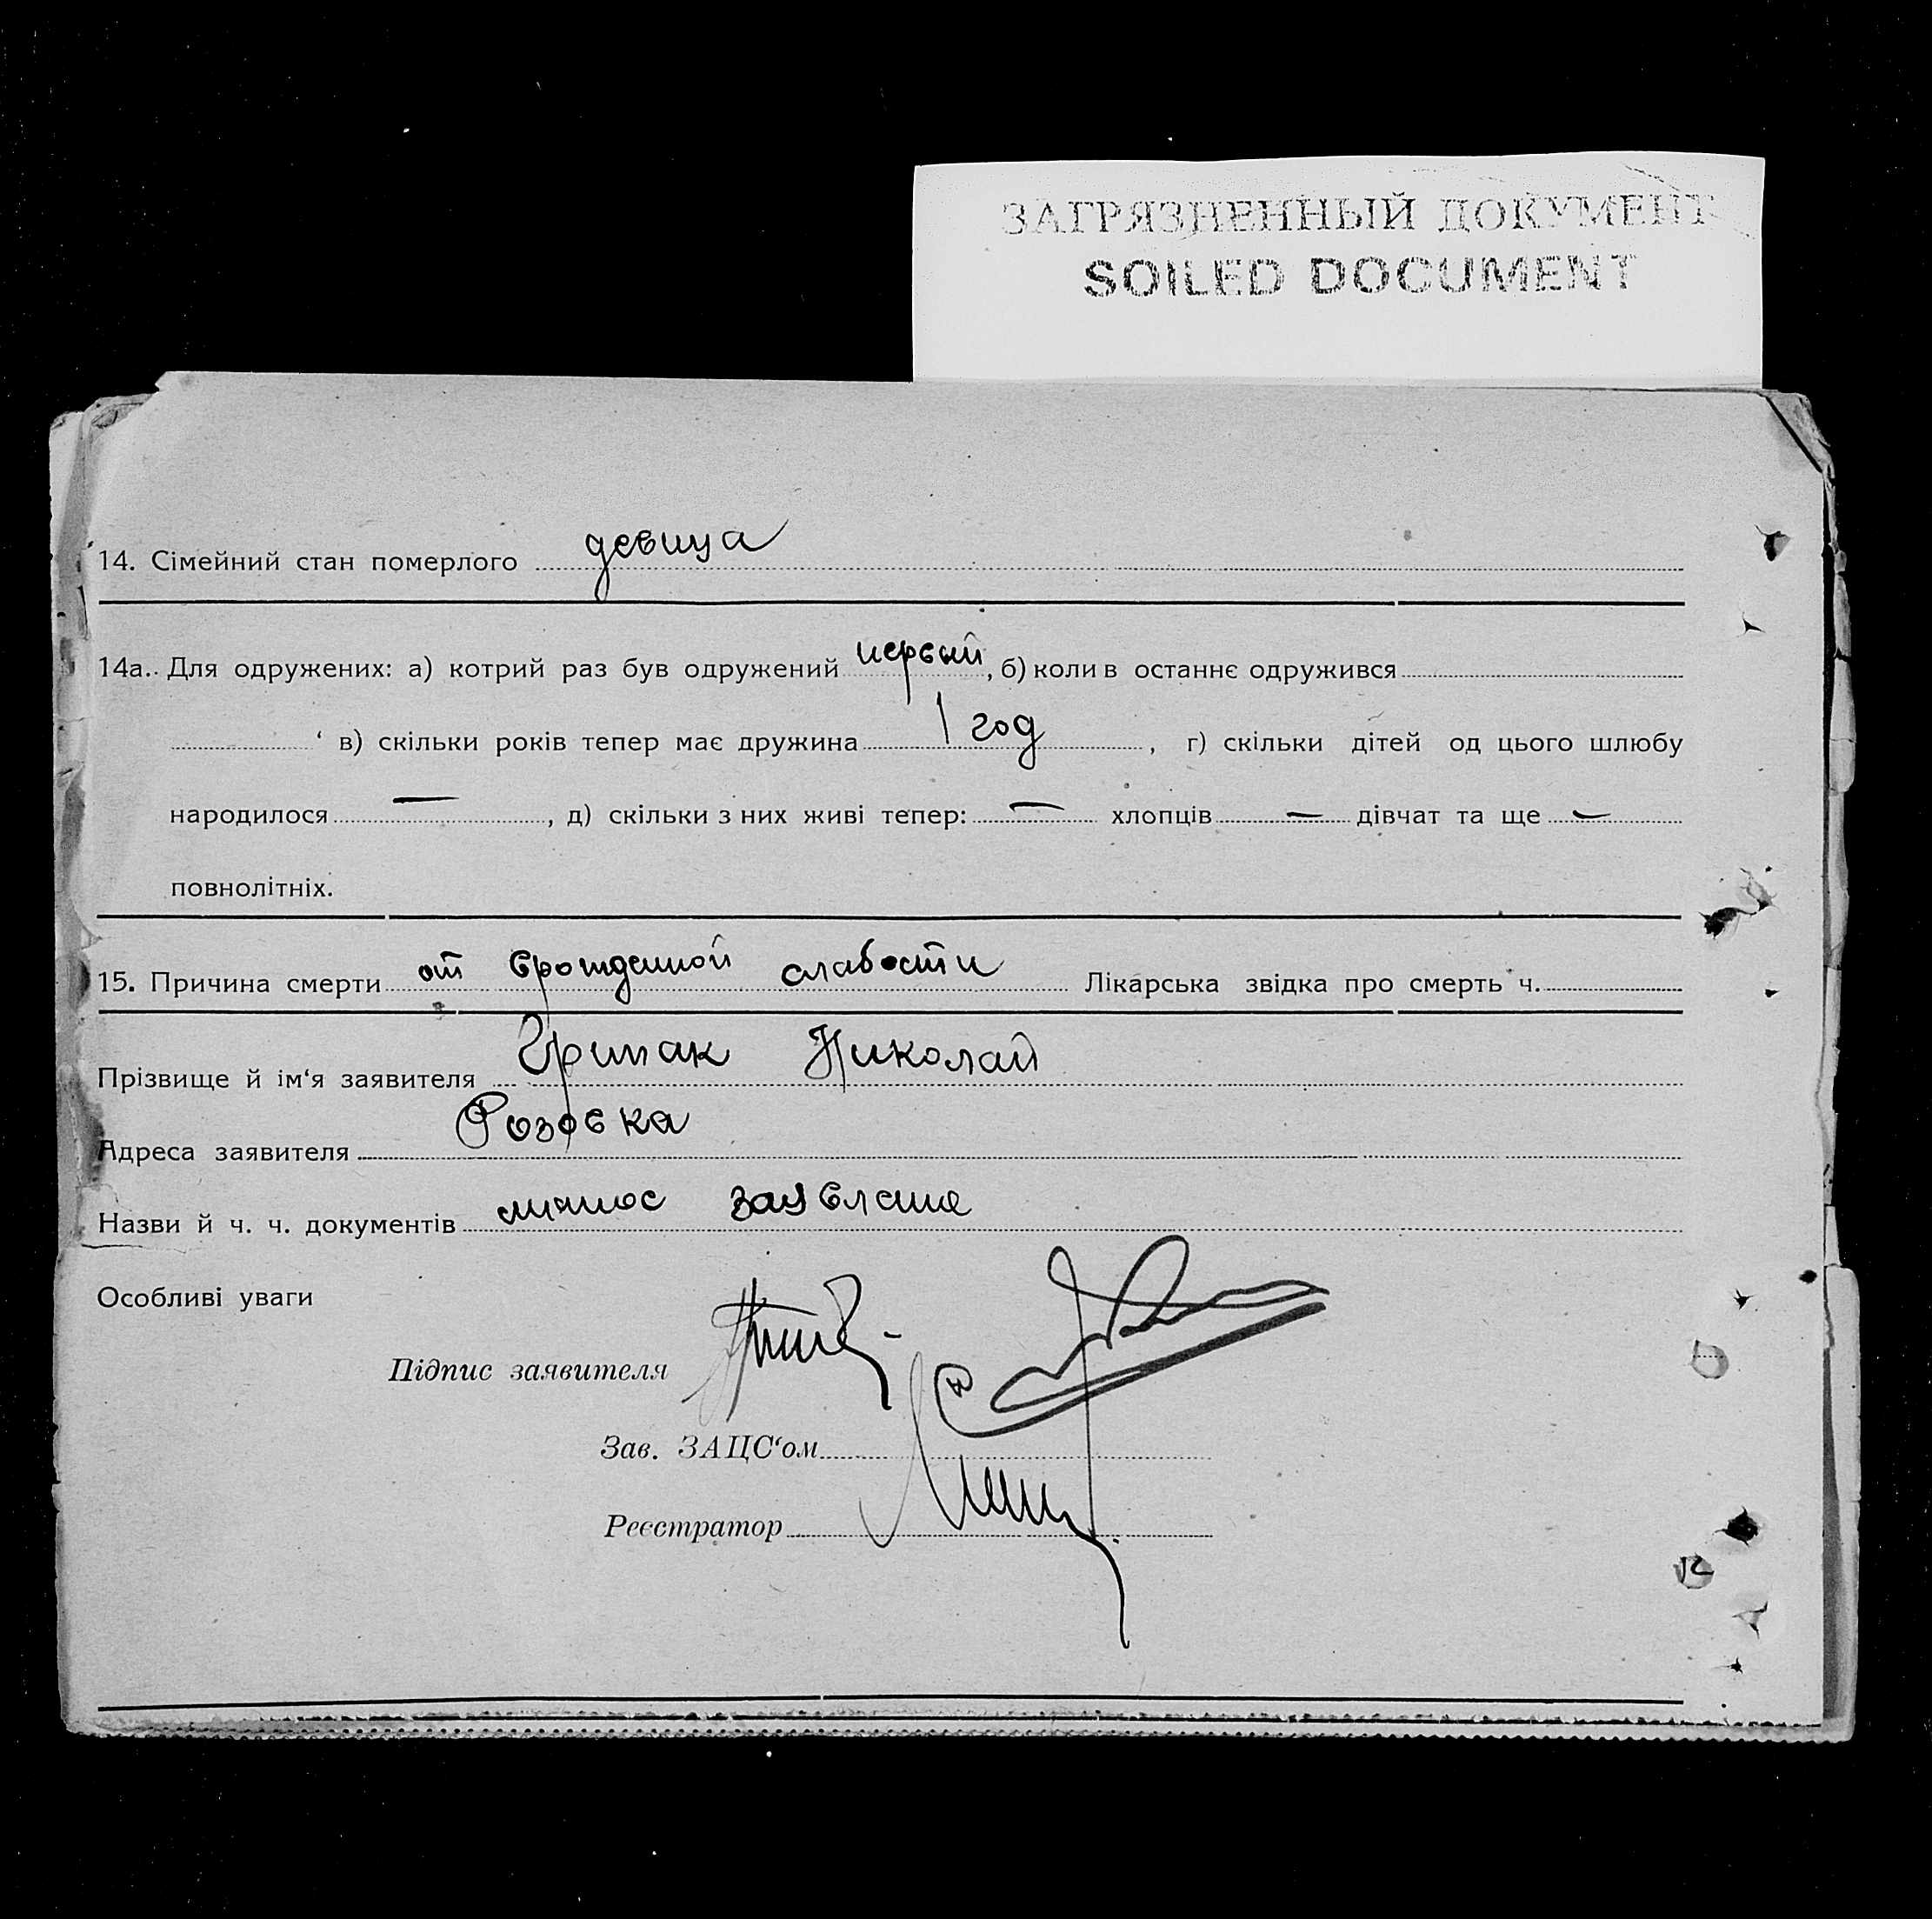 ЗАГРЯЗНЕННЫЙ ДОКУМЕНТ
SOILED DOCUMENT
14. Сімейний стан померлого девица
14а. Для одружених: а) котрий раз був одружений первый, б) коли в останнє одружився
в) скільки років тепер має дружина 1 год, г) скільки дітей од цього шлюбу
народилося —, д) скільки з них живі тепер: — хлопців — дівчат та ще —
повнолітніх.
15. Причина смерти от врожденной слабости Лікарська звідка про смерть ч.
Прізвище й ім‘я заявителя Грипак Николай
Адреса заявителя Розовка
Назви й ч. ч. документів
Особливі уваги
Підпис заявителя
Зав. ЗАЦС‘ом
Реєстратор